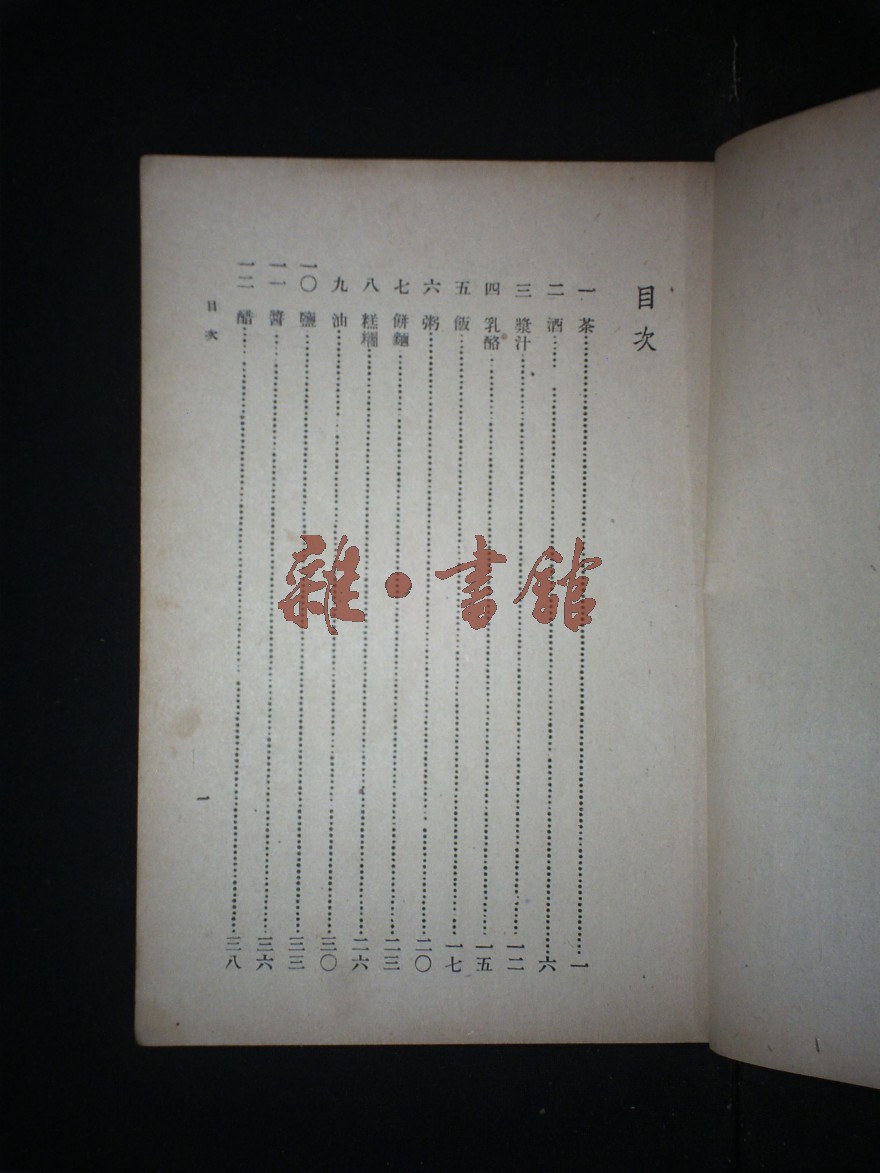 目次
一 茶……一
二 酒……六
三 漿汁……一二
四 乳酪……一五
五 飯……一七
六 粥……二〇
七 餅麵……二三
八 糕糰……二六
九 油……三〇
一〇 鹽……三三
一一 醬……三六
一二 醋……三八
目次
一
雜·書館